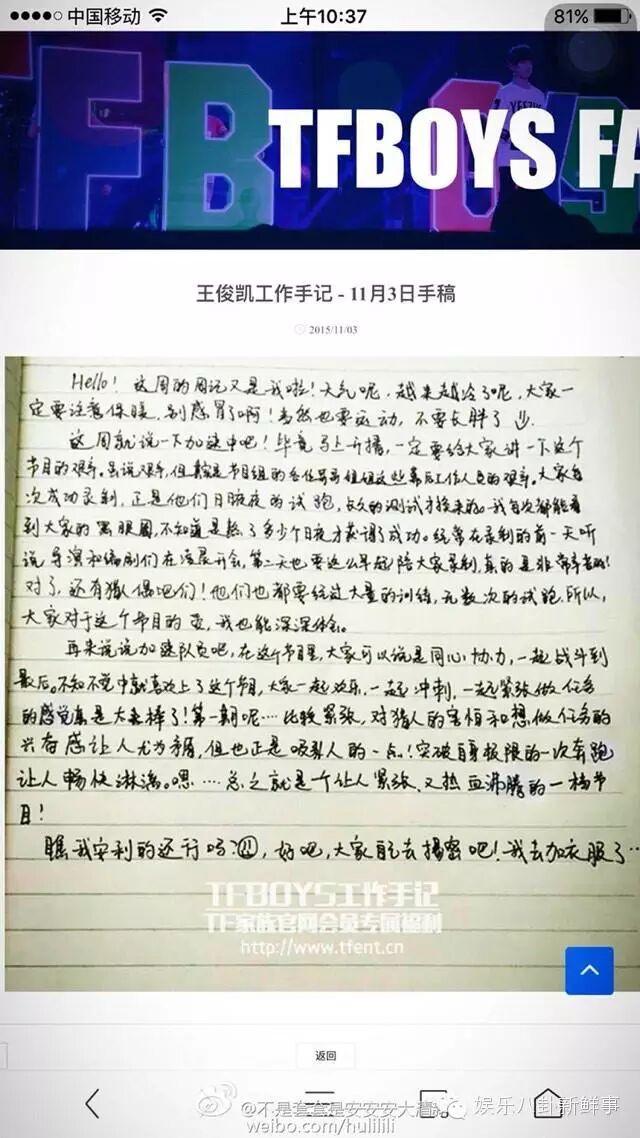 中国移动
上午10:37
81%
TFB
TFBOYS FA
王俊凯工作手记 - 11月3日手稿
2015/11/03
Hello！这周的周记又是我啦！天气呢，越来越冷了呢，大家一
定要注意保暖，别感冒了啊！当然也要运动，不要长胖了
这周就说一下加速中吧！毕竟马上开播，一定要给大家讲一下这个
节目的艰辛。虽说艰辛，但真实是节目组的各位哥哥姐姐这些幕后工作人员的艰辛。大家每
次成功录制，正是他们日日夜夜的试跑，长久的测试才换来的。我每次都能看
到大家的黑眼圈，不知道是熬了多少个日夜才获得了成功。经常在录制的前一天听
说导演和编剧们在凌晨开会，第二天也要这么早起陪大家录制，真的是非常辛苦啊！
对了，还有猎人他们！他们也都要经过大量的训练，无数次的试跑，所以，
大家对于这个节目的爱，我也能深深体会。
再来说说加速队员吧，在这个节目里，大家可以说是同心协力，一起战斗到
最后。不知不觉中就喜欢上了这个节目，大家一起欢乐，一起冲刺，一起紧张做任务
的感觉真是太美棒了！第一期呢…比较紧张，对猎人的害怕和想做任务的
兴奋感让人尤为矛盾，但也正是吸引人的一点！突破自身极限的一次奔跑
让人畅快淋漓。嗯……总之就是个让人紧张，又热血沸腾的一档节
目！
瞧我安利的还行吗？，好吧，大家自己去揭密吧！我去加衣服了…
TFBOYS工作手记
TF家族官网会员专属福利
http://www.tfent.cn
返回
@不是套套是安安安大
weibo.com/hulilili
娱乐八卦新鲜事